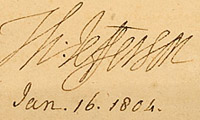 Th: Jefferson
Jan. 16. 1804.